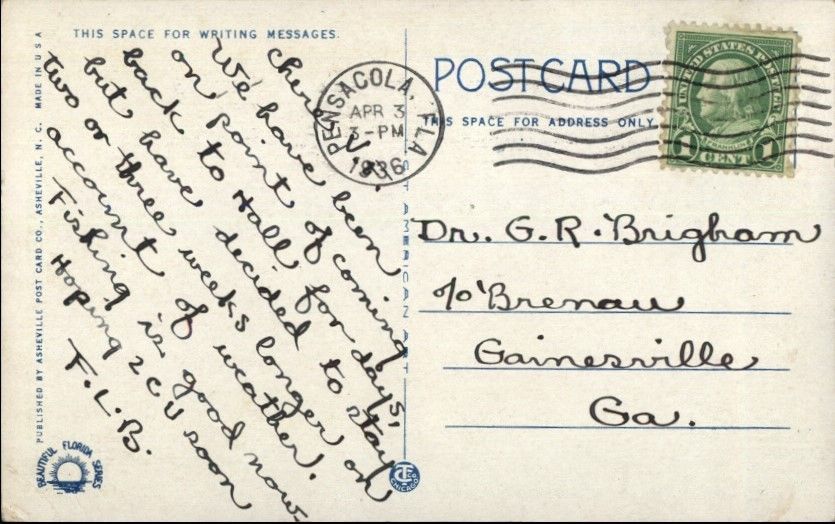 THIS SPACE FOR WRITING MESSAGES.
Cher
We have been
on point of coming
back to Hall for days,
but have decided to stay
two or three weeks longer on
account of weather.
Fishing is good now.
Hoping 2 C U soon
F. L. B.
PENSACOLA, FLA
APR 3
3-PM
1936
POSTCARD
THIS SPACE FOR ADDRESS ONLY
UNITED STATES POSTAGE
FRANKLIN
1 CENT 1
Dr. G. R. Brigham
c/o Brenau
Gainesville
Ga.
PUBLISHED BY ASHEVILLE POST CARD CO., ASHEVILLE, N. C. MADE IN USA
BEAUTIFUL FLORIDA SERIES
CHICAGO